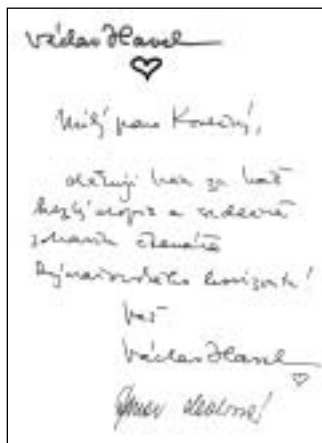 Václav Havel
Milý pane Konečný,
děkuji Vám za Váš
hezký dopis a srdečně
zdravím čtenáře
Rýmařovského horizontu!
Váš
Václav Havel